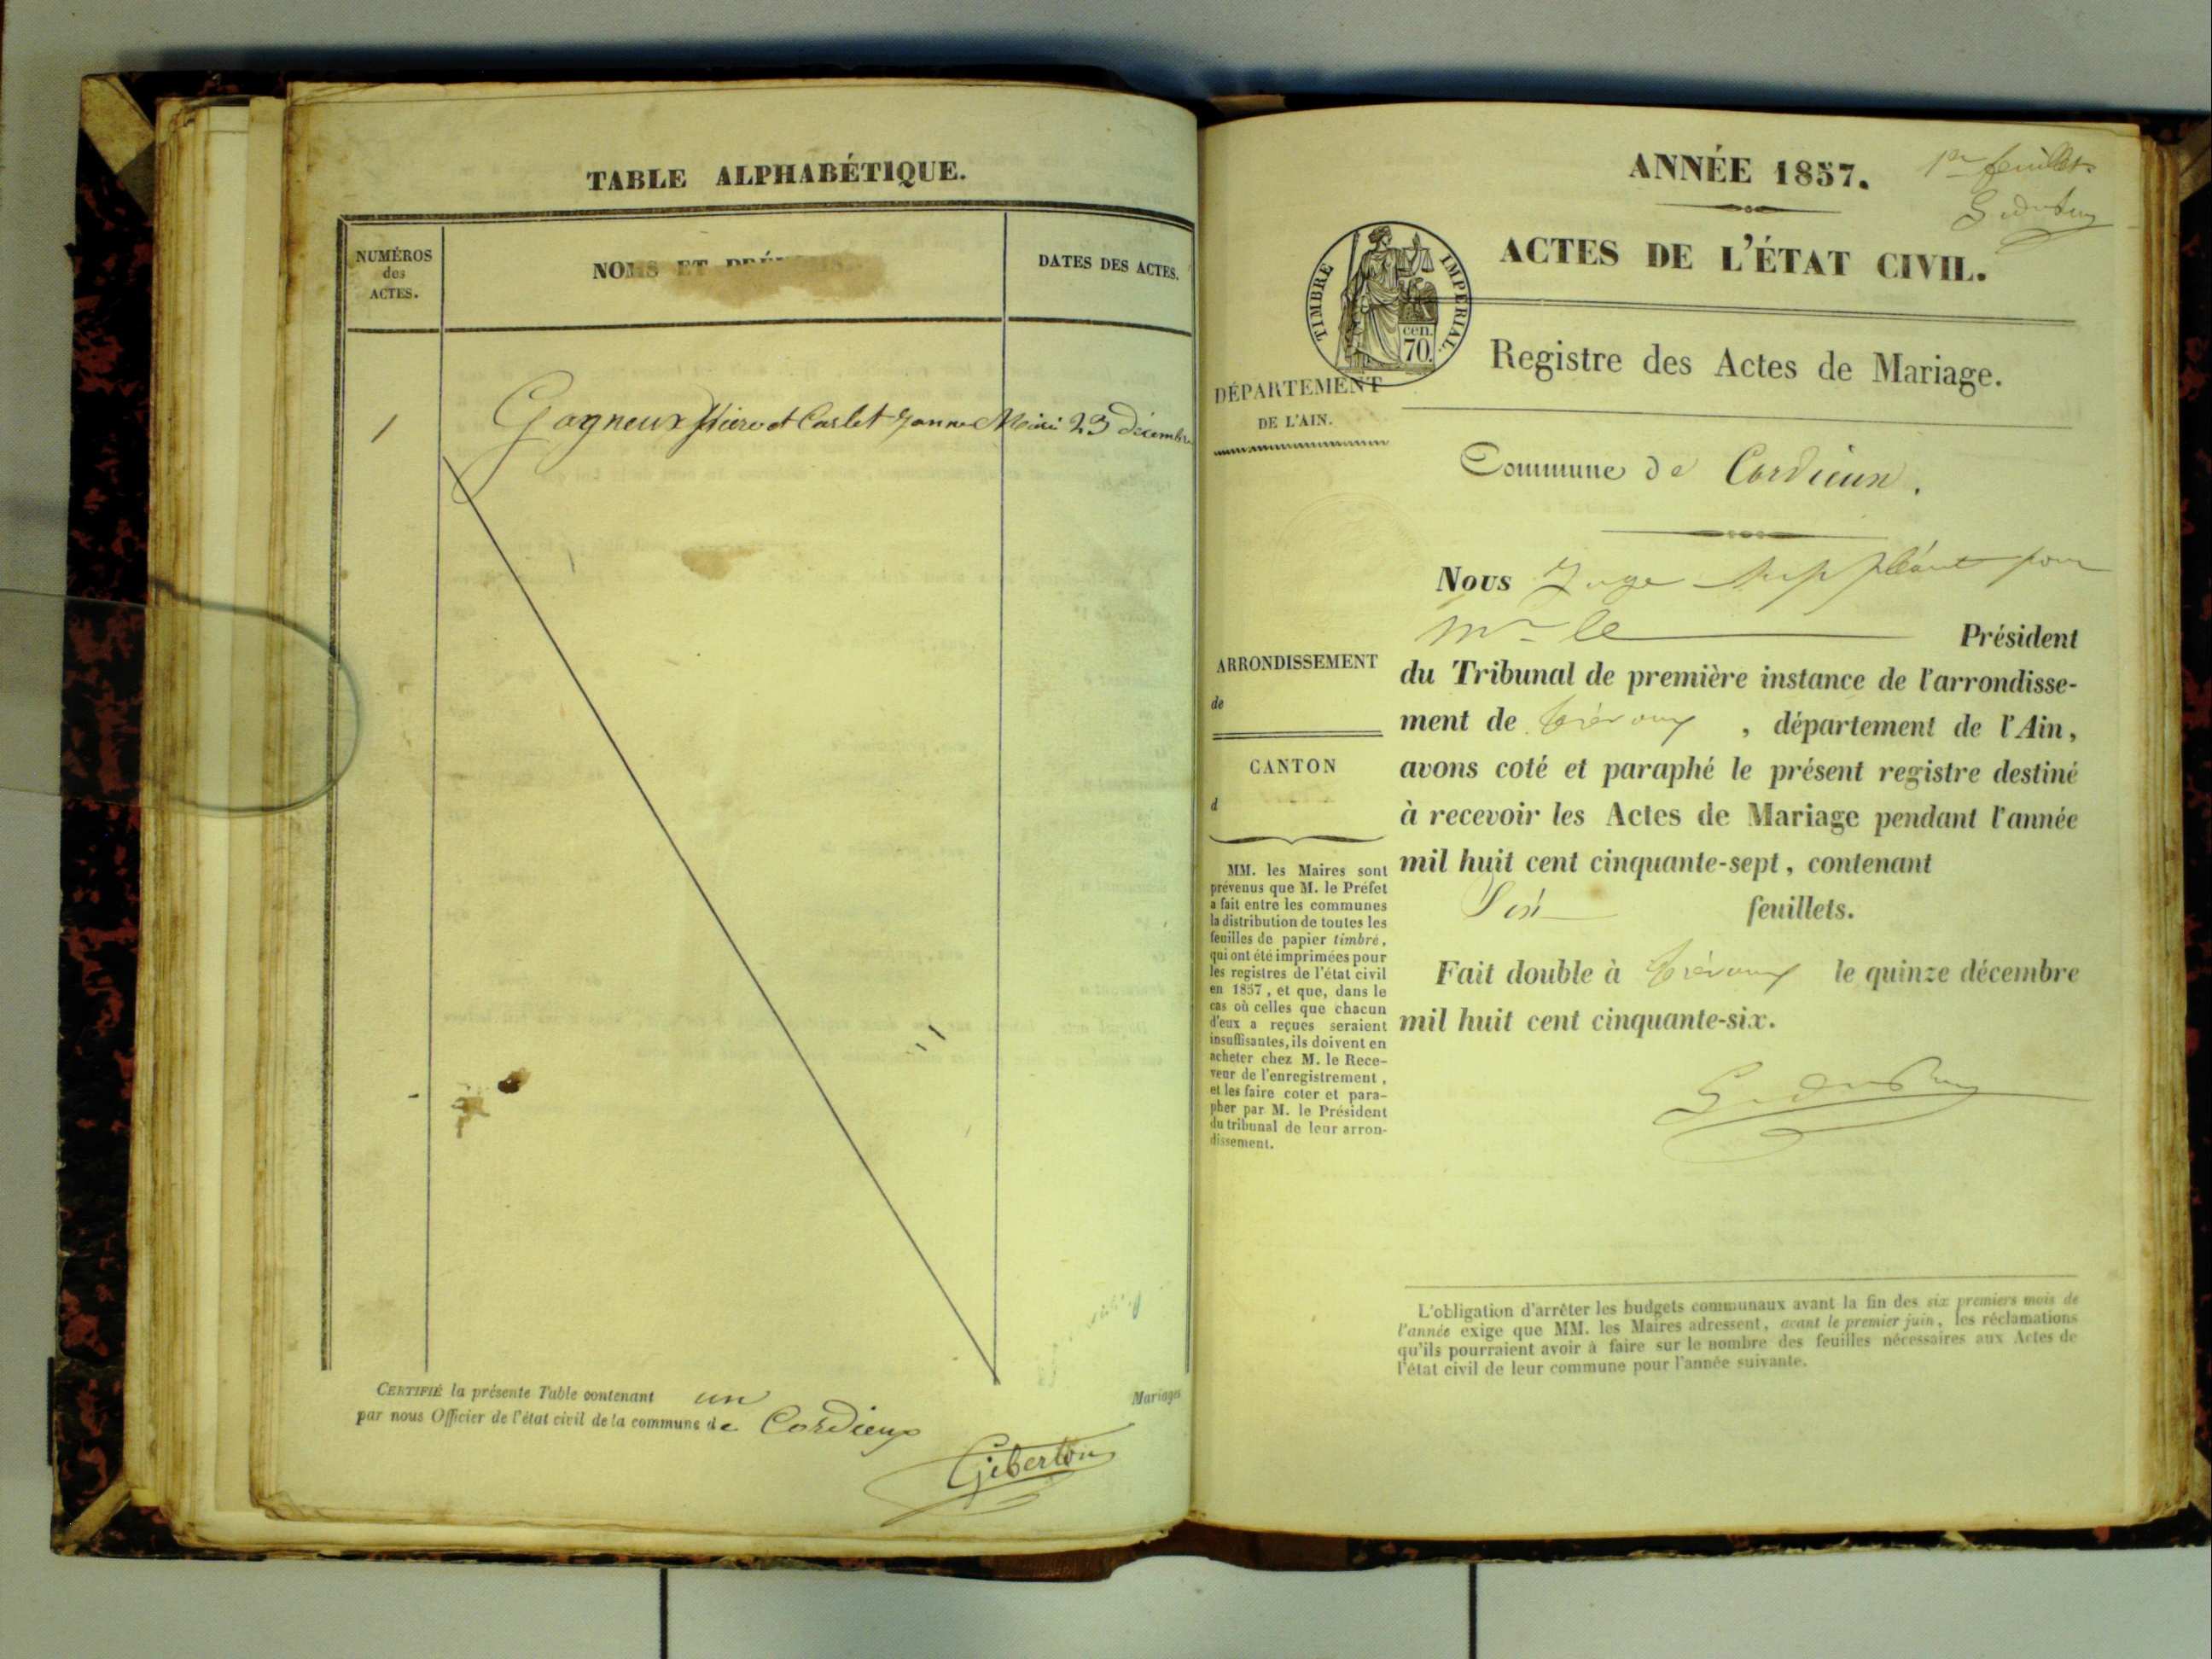 TABLE ALPHABÉTIQUE.
NUMÉROS
des
ACTES.
NOMS ET
DATES DES ACTES.
1
Gagneux Pierre et Carlet Janne Marie 23 décembre
CERTIFIÉ la présente Table contenant un Mariages
par nous Officier de l'état civil de la commune de Cordieux
Giberton
1er feuillet
ANNÉE 1857.
ACTES DE L'ÉTAT CIVIL.
TIMBRE IMPÉRIAL
70 cen.
Registre des Actes de Mariage.
DÉPARTEMENT
DE L'AIN.
Commune de Cordieux.
Nous Juge suppléant pour
Mr le Président
du Tribunal de première instance de l'arrondisse-
ment de Trévoux, département de l'Ain,
avons coté et paraphé le présent registre destiné
à recevoir les Actes de Mariage pendant l'année
mil huit cent cinquante-sept, contenant
Six feuillets.
Fait double à Trévoux le quinze décembre
mil huit cent cinquante-six.
ARRONDISSEMENT
de
CANTON
d
MM. les Maires sont
prévenus que M. le Préfet
a fait entre les communes
la distribution de toutes les
feuilles de papier timbré,
qui ont été imprimées pour
les registres de l'état civil
en 1857, et que, dans le
cas où celles que chacun
d'eux a reçues seraient
insuffisantes, ils doivent en
acheter chez M. le Rece-
veur de l'enregistrement,
et les faire coter et para-
pher par M. le Président
du tribunal de leur arron-
dissement.
L'obligation d'arrêter les budgets communaux avant la fin des six premiers mois de
l'année exige que MM. les Maires adressent, avant le premier juin, les réclamations
qu'ils pourraient avoir à faire sur le nombre des feuilles nécessaires aux Actes de
l'état civil de leur commune pour l'année suivante.